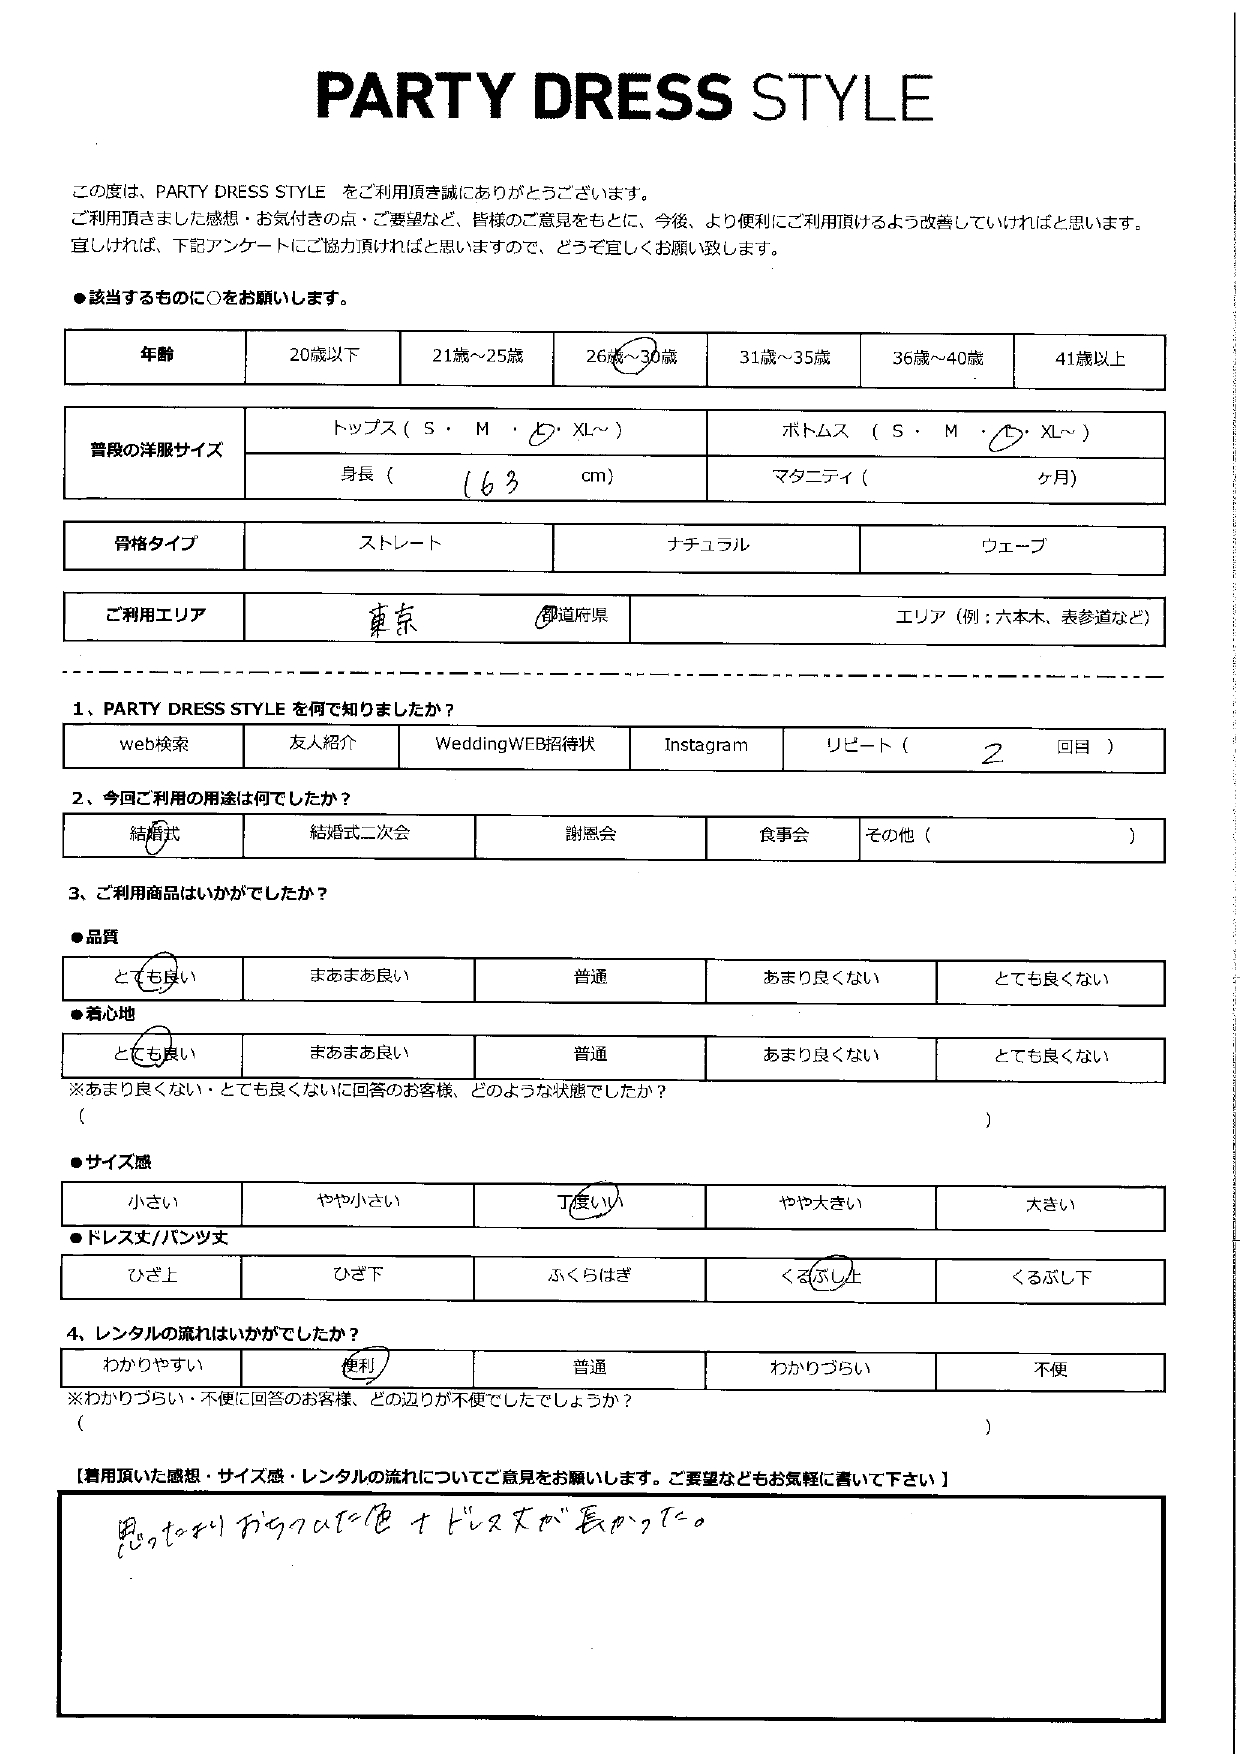 PARTY DRESS STYLE
この度は、PARTY DRESS STYLE をご利用頂き誠にありがとうございます。
ご利用頂きました感想・お気付きの点・ご要望など、皆様のご意見をもとに、今後、より便利にご利用頂けるよう改善していければと思います。
宜しければ、下記アンケートにご協力頂ければと思いますので、どうぞ宜しくお願い致します。
●該当するものに○をお願いします。
年齢 20歳以下 21歳～25歳 26歳～30歳 31歳～35歳 36歳～40歳 41歳以上
普段の洋服サイズ
トップス ( S ・ M ・ L ・ XL～ ) ボトムス ( S ・ M ・ L ・ XL～ )
身長 ( 163 cm) マタニティ ( ヶ月)
骨格タイプ ストレート ナチュラル ウェーブ
ご利用エリア 東京 都道府県 エリア（例：六本木、表参道など）
1、PARTY DRESS STYLE を何で知りましたか？
web検索 友人紹介 WeddingWEB招待状 Instagram リピート ( 2 回目 )
2、今回ご利用の用途は何でしたか？
結婚式 結婚式二次会 謝恩会 食事会 その他 ( )
3、ご利用商品はいかがでしたか？
●品質
とても良い まあまあ良い 普通 あまり良くない とても良くない
●着心地
とても良い まあまあ良い 普通 あまり良くない とても良くない
※あまり良くない・とても良くないに回答のお客様、どのような状態でしたか？
( )
●サイズ感
小さい やや小さい 丁度いい やや大きい 大きい
●ドレス丈/パンツ丈
ひざ上 ひざ下 ふくらはぎ くるぶし上 くるぶし下
4、レンタルの流れはいかがでしたか？
わかりやすい 便利 普通 わかりづらい 不便
※わかりづらい・不便に回答のお客様、どの辺りが不便でしたでしょうか？
( )
【着用頂いた感想・サイズ感・レンタルの流れについてご意見をお願いします。ご要望などもお気軽に書いて下さい 】
思ったより おちついた色 + ドレス丈が長かった。